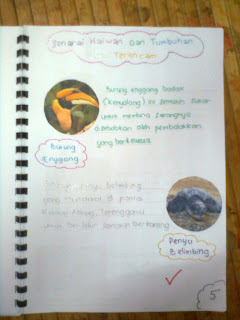 Senarai Haiwan Dan Tumbuhan
Terancam
Burung enggang badak
(kenyalang) ini semakin sukar
untuk membina sarangnya
disebabkan oleh pembalakkan
yang berleluasa.
Burung
Enggang
penyu belimbing
yang mendarat di pantai
Rantau Abang Terengganu
untuk bertelur semakin berkurang
Penyu
Belimbing
5